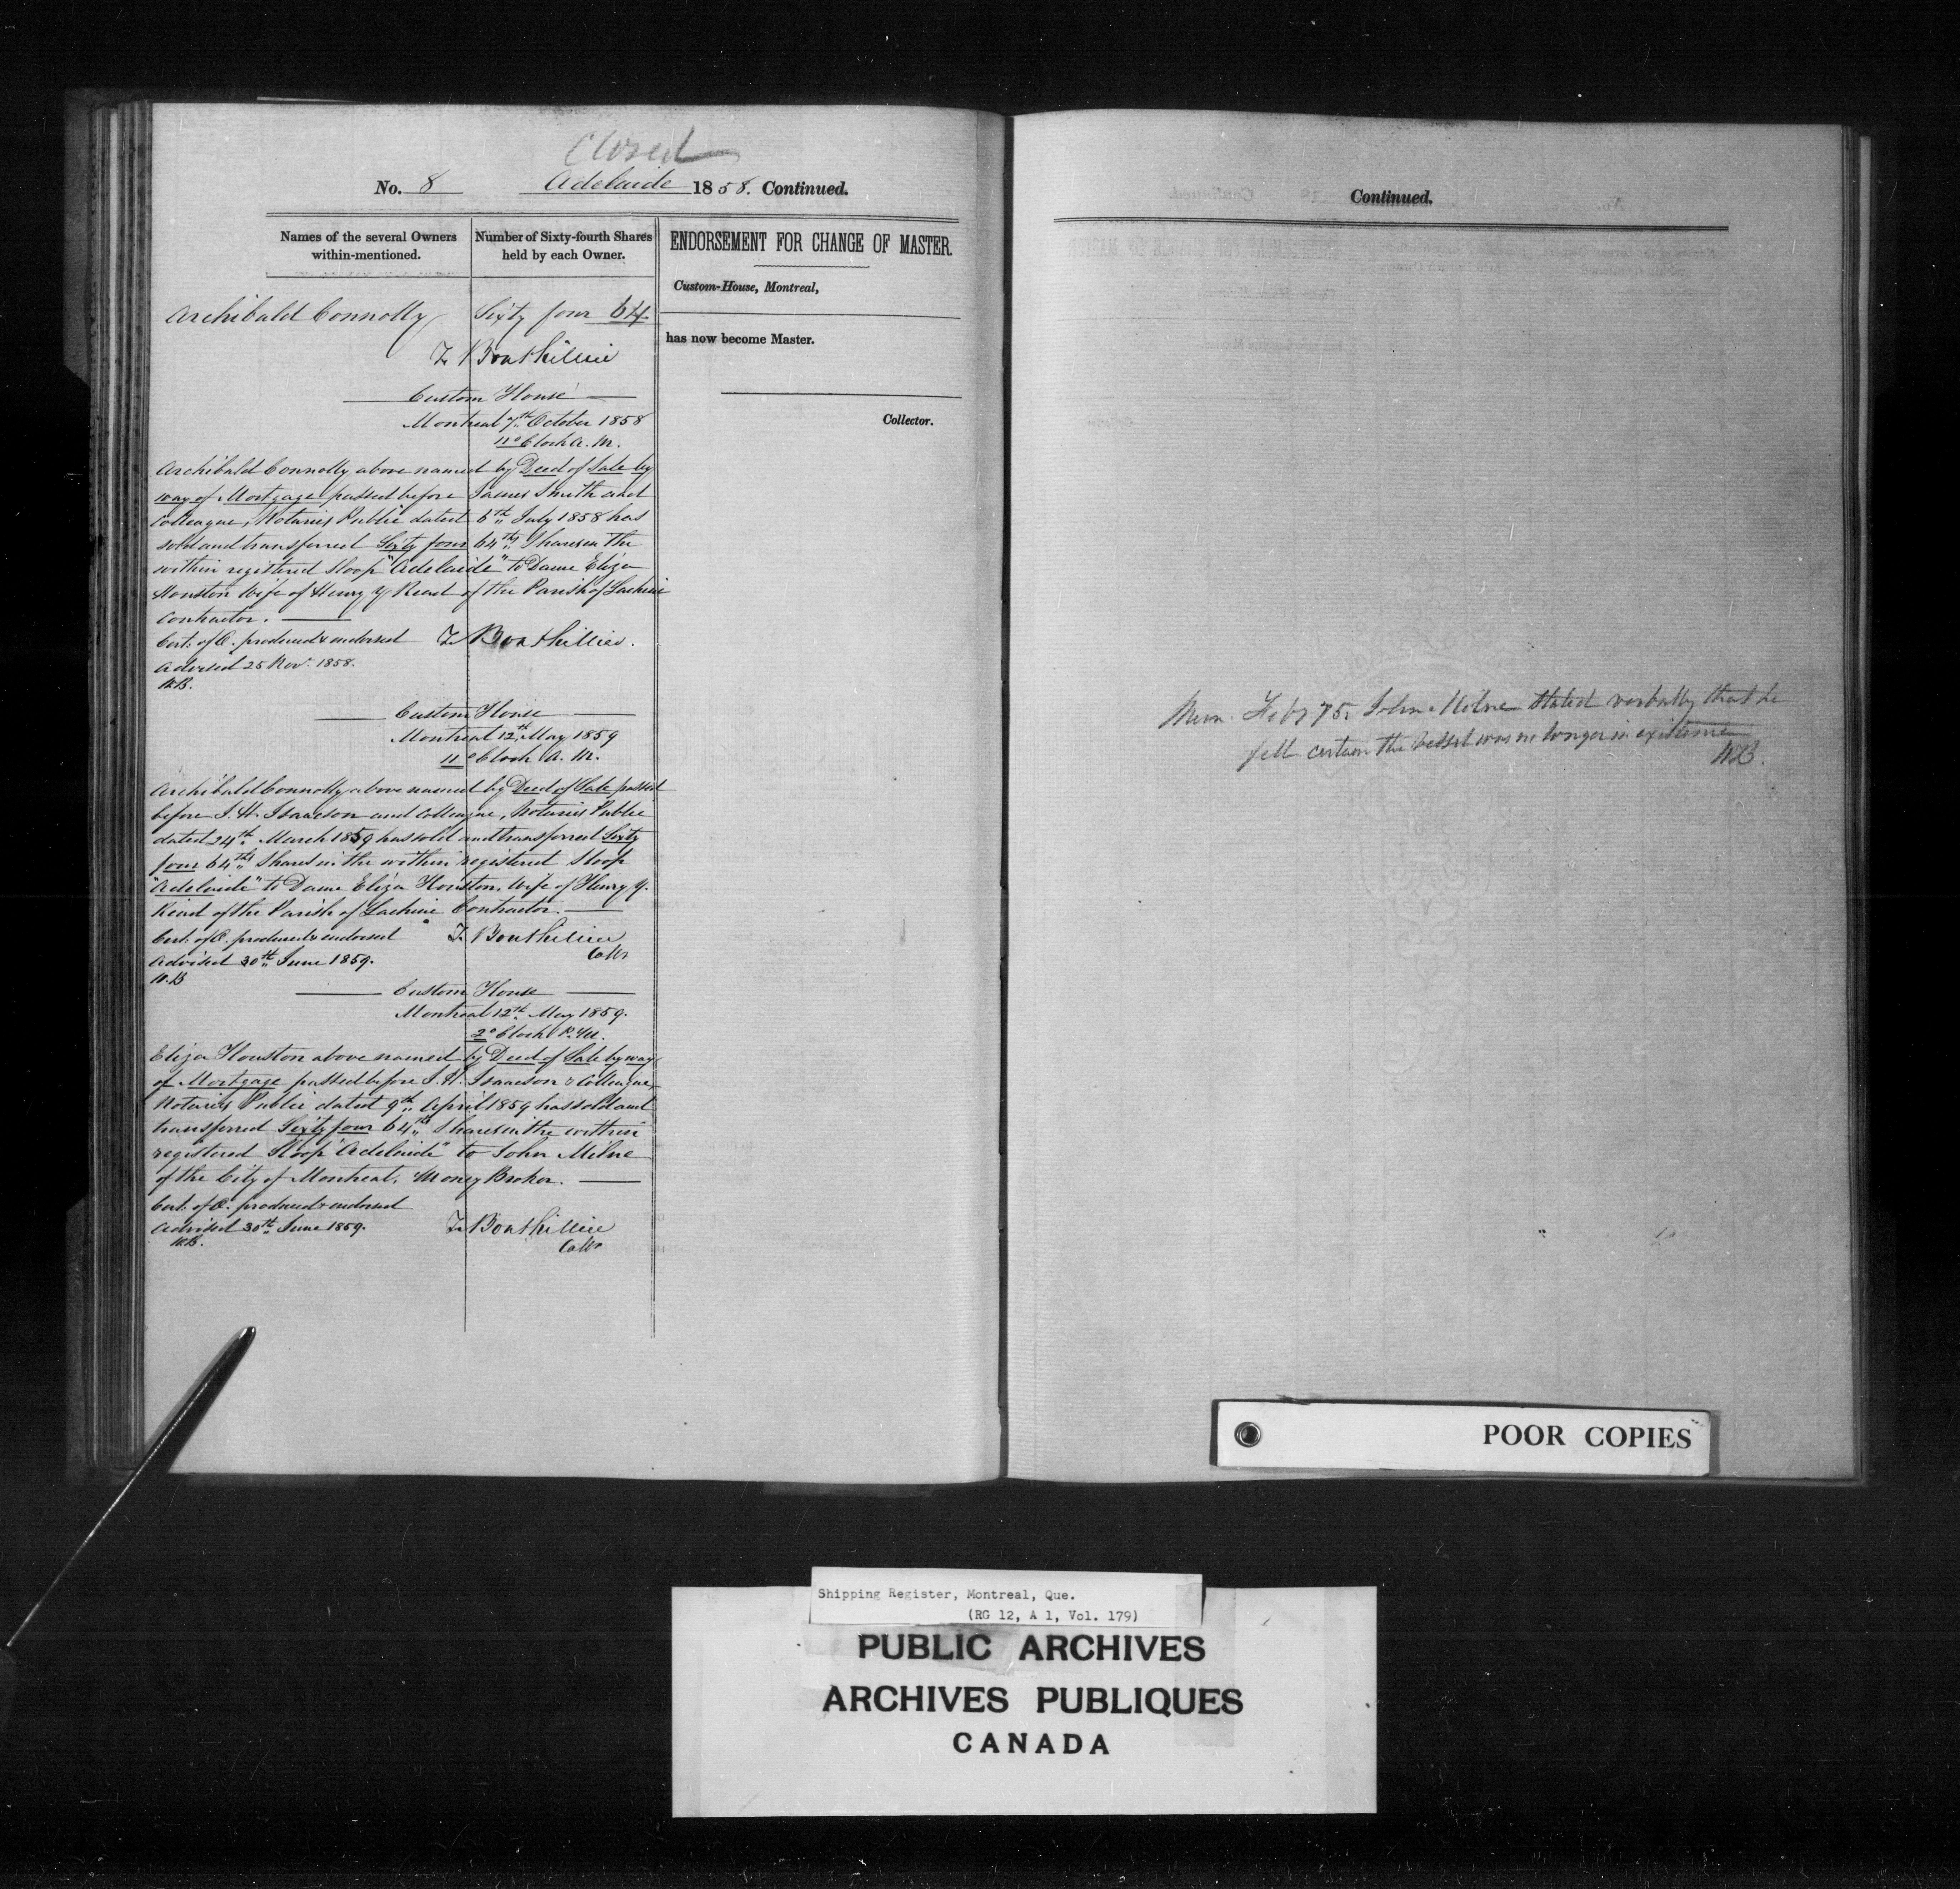 Closed
No. 8 Adelaide 1858. Continued.
Names of the several Owners within-mentioned.
Number of Sixty-fourth Shares held by each Owner.
ENDORSEMENT FOR CHANGE OF MASTER.
Custom-House, Montreal,
has now become Master.
Collector.
Archibald Connolly Sixty four 64
T. Bouthillier
Custom House
Montreal 7th October 1858
11 o'Clock A.M.
Archibald Connolly above named by Deed of Sale by
way of Mortgage passed before James Smith and
Colleague, Notaries Public dated 6th July 1858 has
sold and transferred Sixty four 64ths Shares in the
within registered Sloop "Adelaide" to Dame Eliza
Houston Wife of Henry Y Read of the Parish of Lachine
Contractor.
Cert. of O. produced & endorsed T. Bouthillier.
Advised 25 Nov. 1858.
W.B.
Custom House
Montreal 12th May 1859
11 o'Clock A.M.
Archibald Connolly above named by Deed of Sale passed
before J.H. Isaacson and Colleague, Notaries Public
dated 24th March 1859 has sold and transferred Sixty
four 64ths Shares in the within registered Sloop
"Adelaide" to Dame Eliza Houston, Wife of Henry Y.
Read of the Parish of Lachine Contractor.
Cert. of O. produced & endorsed T. Bouthillier
Advised 30th June 1859. Collr
W.B
Custom House
Montreal 12th May 1859.
2 o'Clock P.M.
Eliza Houston above named by Deed of Sale by way
of Mortgage passed before J.H. Isaacson & Colleague,
Notaries Public dated 9th April 1859 has sold and
transferred Sixty four 64ths Shares in the within
registered Sloop "Adelaide" to John Milne
of the City of Montreal, Money Broker.
Cert. of O. produced & endorsed
Advised 30th June 1859. T. Bouthillier
W.B. Collr
Continued.
Mem. Feby 75. John Milne stated verbally that he
felt certain the Vessel was no longer in existence
WB.
POOR COPIES
Shipping Register, Montreal, Que.
(RG 12, A 1, Vol. 179)
PUBLIC ARCHIVES
ARCHIVES PUBLIQUES
CANADA